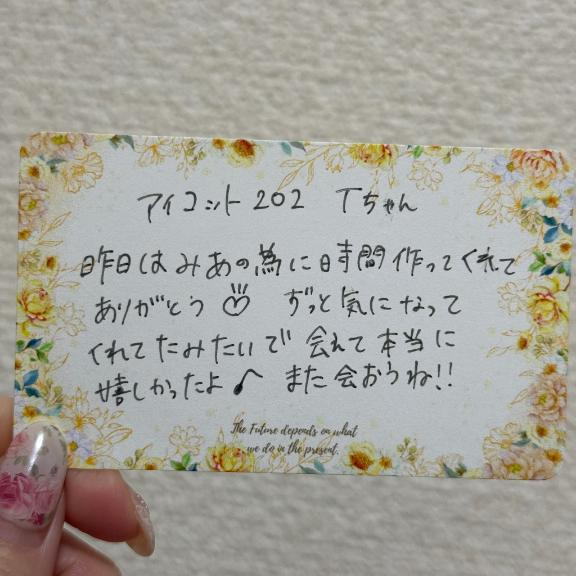 アイコット202 Tちゃん
昨日はみあの為に時間作ってくれて
ありがとう ずっと気になって
くれてたみたいで 会れて本当に
嬉しかったよ♪ また会おうね!!
The Future depends on what
we do in the present.